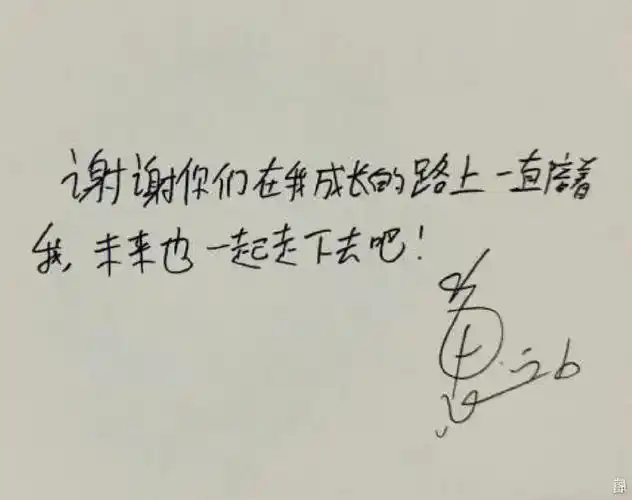 谢谢你们在我成长的路上一直陪着
我,未来也一起走下去吧!